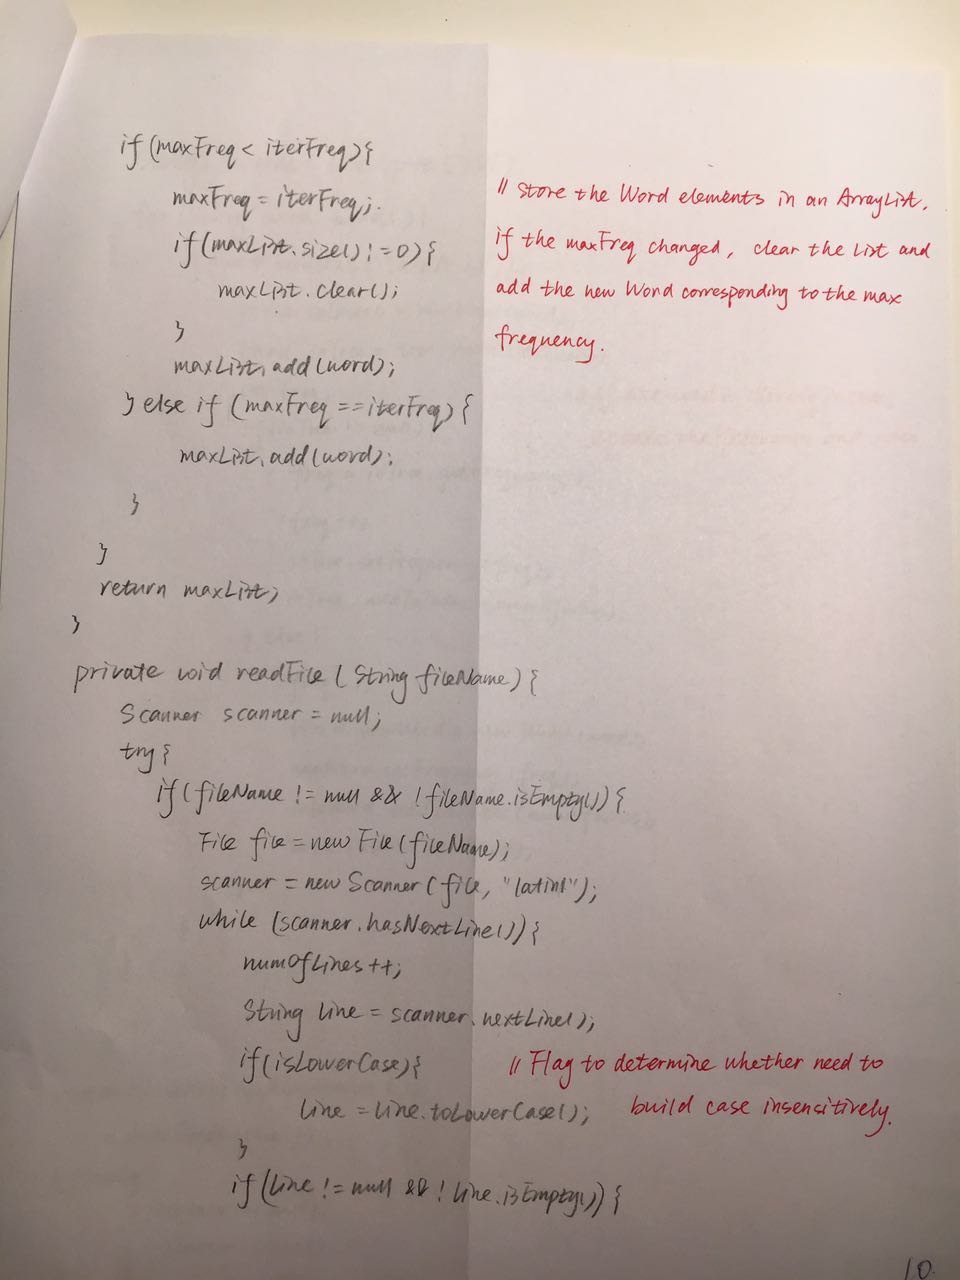 if(maxFreq < iterFreq){
maxFreq = iterFreq;
if(maxList.size() != 0){
maxList.clear();
}
maxList.add(word);
} else if (maxFreq == iterFreq) {
maxList.add(word);
}
}
return maxList;
}
// Store the Word elements in an ArrayList,
if the maxFreq changed, clear the list and
add the new Word corresponding to the max
frequency.
private void readFile (String fileName) {
Scanner scanner = null;
try{
if(fileName != null && !fileName.isEmpty()){
File file = new File(fileName);
scanner = new Scanner(file, "latin1");
while (scanner.hasNextLine()){
numOfLines++;
String line = scanner.nextLine();
if(isLowerCase){
line = line.toLowerCase();
}
// Flag to determine whether need to
build case insensitively.
if(line != null && !line.isEmpty()){
10.